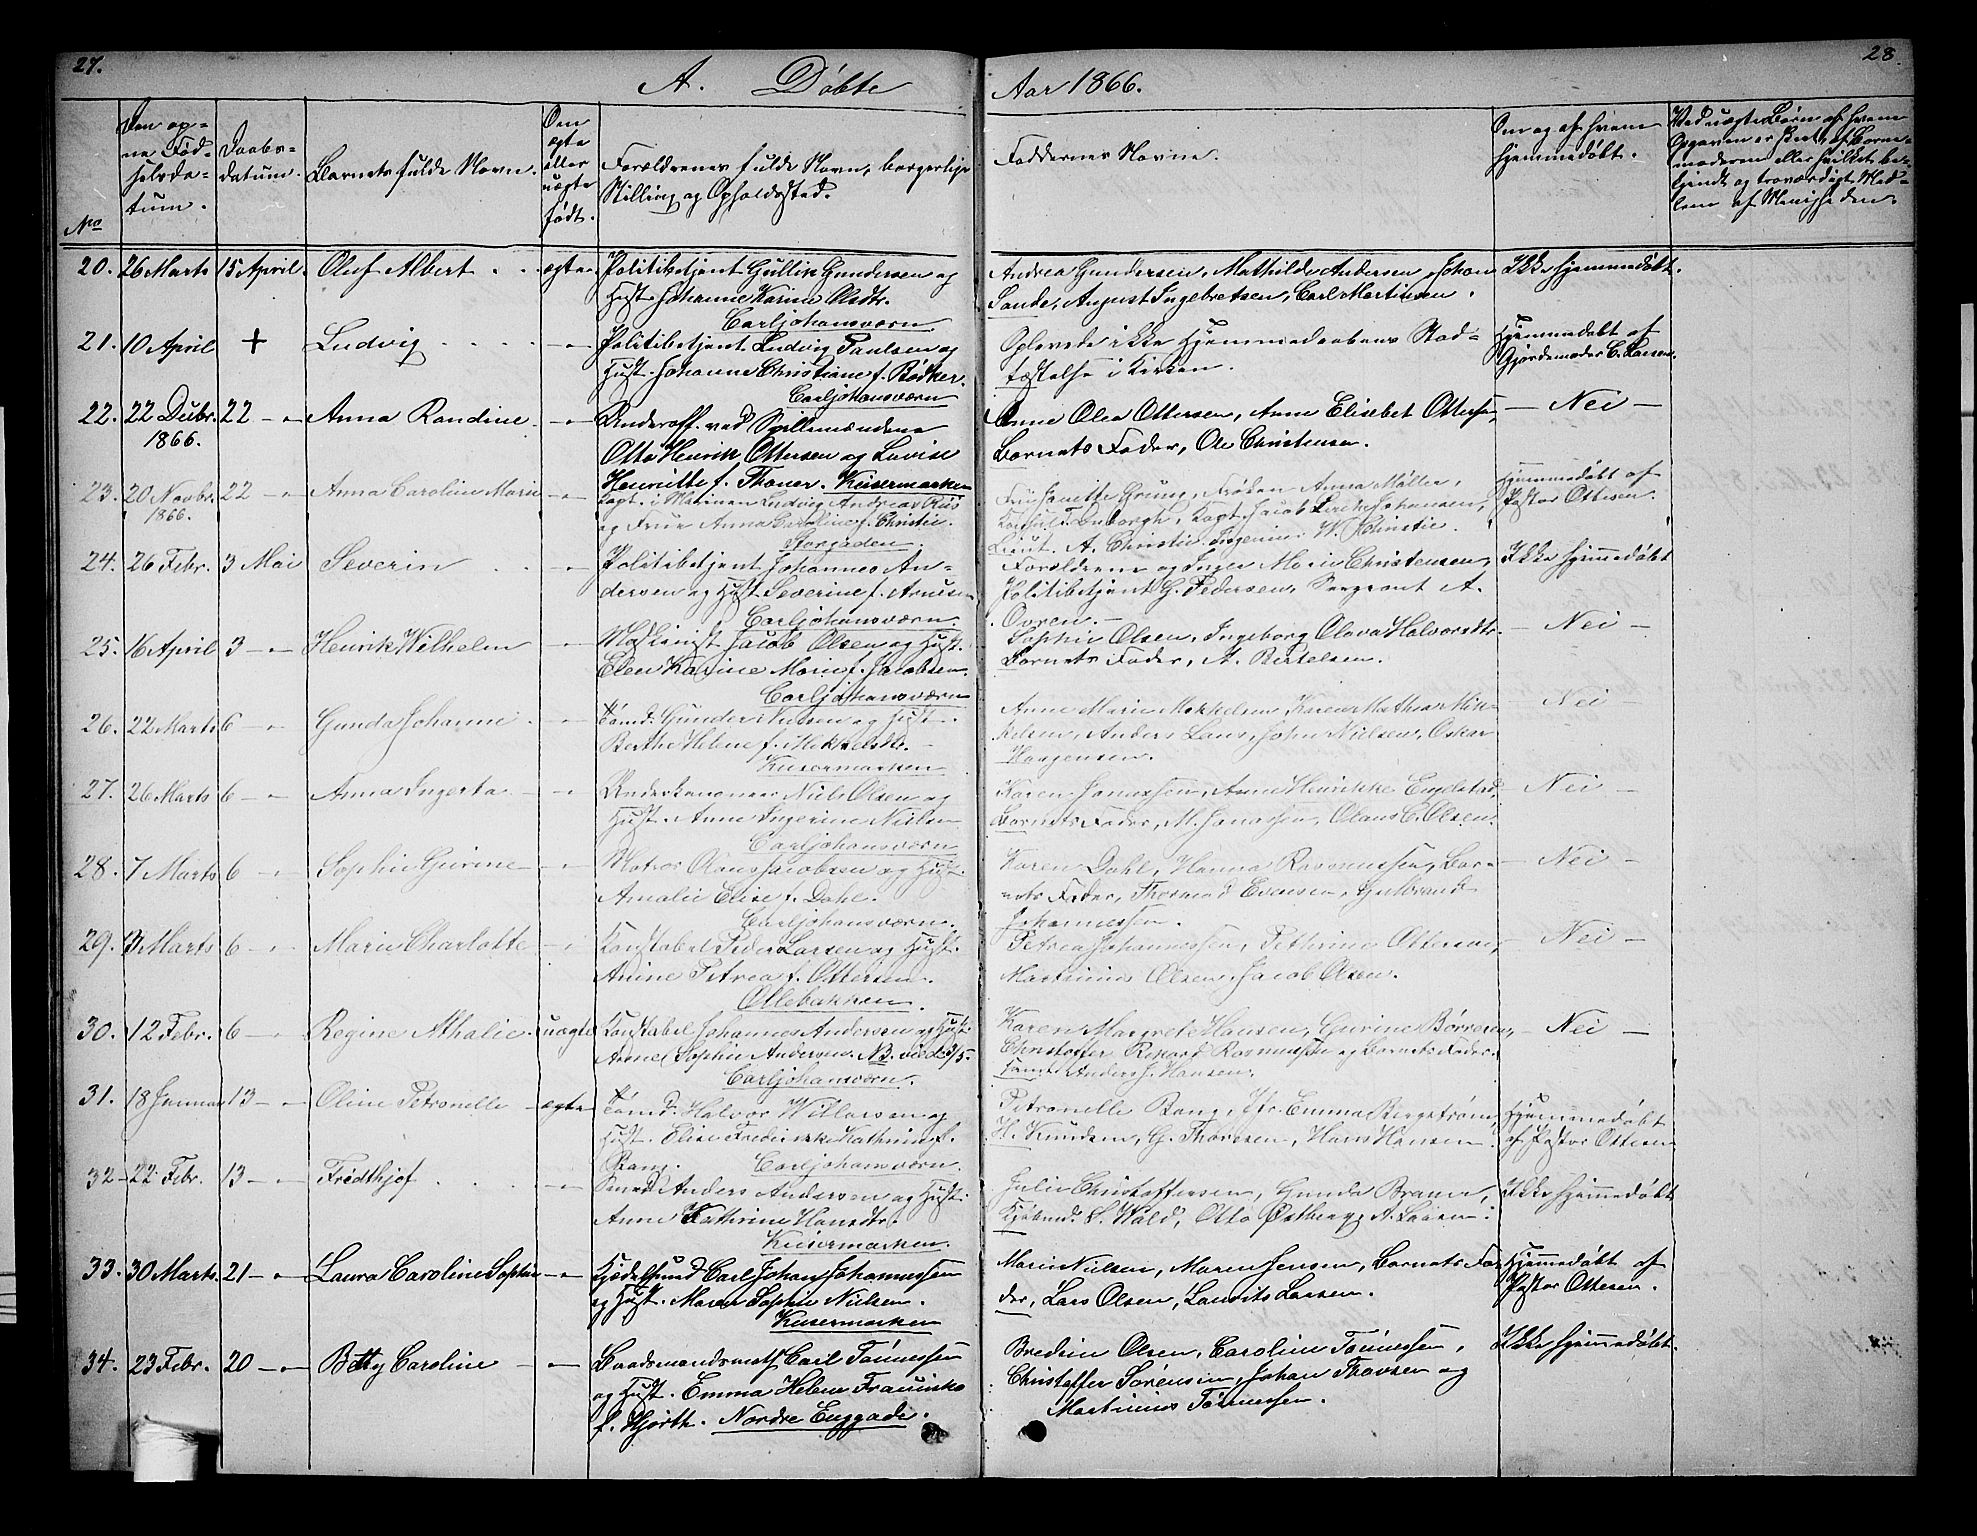 27.
A. Döbte
Aar 1866.
28.
No
Den op=
ne Föd=
selsda=
tum.
Daabs=
datum.
Barnets fulde Navn.
Om
ægte
eller
uægte
født.
Forældrenes fulde Navn, borgerlige
Stilling og Opholdssted.
Faddernes Navne.
Om og af hvem
hjemmedøbt.
Ved uægte Børn af hvem
Opgaven er
moderen eller hvilket be=
kjendt og troværdigt Med=
lem af Menigheden
20. 26 Marts 15 April. Oluf Albert . . ægte Politibetjent Gullik Gundersen og
Hust. Johanne Karine Olsdtr.
Carljohansværn
Andrea Gundersen, Mathilde Andersen, Johan
Sande, August Ingebretsen, Carl Martinsen.
Ikke hjemmedøbt.
21. 10 April + Ludvig . . . . -"- Politibetjent Ludvig Paulsen og
Hust. Johanne Christiane f. Bødker.
Carljohansværn
Oplevede ikke Hjemmedaabens Stad=
fæstelse i Kirken.
Hjemmedøbt af
Gjordemoder C. Larsen.
22. 22 Decbr. 22 -"- Anna Randine. -"- Underoff. ved Spillemændene
1866.
Otto Henrik Ottersen og Lovise
Henriette f. Thoner. Keisermarken
Anne Olea Ottersen, Anne Elisebet Ottersen,
Barnets Fader, Ole Christensen.
- Nei -
23. 20 Novbr. 22 -"- Anna Caroline Marie -"- Capt. i Marinen Ludvig Andreas Riis
1866.
og Frue Anna Caroline f. Christie.
Storgaden.
Fru Janette Grung, Frøken Anna Møller,
Konsul Fanborgh, Kapt. Jacob Lerche Johansen,
Lieut. A. Christie, Ingeniør W. Christie.
Hjemmedøbt af
Pastor Ottesen.
24. 26 Febr. 3 Mai Severin . . -"- Politibetjent Johannes An=
dersen og Hust. Severine f. Arnesen
Carljohansværn.
Forældrene og Inger Marie Christensen,
Politibetjent G. Pedersen, Sergeant A.
Ovren. -
Ikke hjemmedøbt
25. 16 April 3 -"- Henrik Wilhelm -"- Maskinist Jacob Olsen og Hust.
Elen Karine Marie f. Jacobsen.
Carljohansværn
Sophie Olsen, Ingeborg Olava Halvorsdtr.
Barnets Fader, A. Bertelsen.
- Nei -
26. 22 Marts 6 -"- Gunda Johanne . -"- Tømd. Gunder Nilsen og Hust.
Berthe Helene f. Mikkelsdtr. -
Keisermarken
Anne Marie Mikkelsen, Karen Mathea Mik=
kelsen, Anders Laus, John Nielsen, Oskar
Haagensen.
- Nei -
27. 26 Marts 6 -"- Anna Ingerta -"- Underkanoneer Niels Olsen og
Hust. Anne Ingerine Nielsen
Carljohansværn
Karen Jonassen, Anne Henrikke Engelstad,
Barnets Fader, M. Jonassen, Olaus C. Olsen.
- Nei -
28. 7 Marts 6 -"- Sophie Gurine -"- Matros Olaus Jacobsen og Hust.
Amalie Elise f. Dahl.
Carljohansværn.
Karen Dahl, Hanna Rasmussen, Bar=
nets Fader, Thormod Evensen, Gulbrand
Johannessen.
- Nei -
29. 13 Marts 6 -"- Marie Charlotte -"- Konstabel Peder Larsen og Hust.
Anine Petrea f. Ottersen.
Ollebakken.
Petrea Johannessen, Pethrine Ottersen,
Martinius Olsen, Jacob Olsen.
- Nei -
30. 12 Febr. 6 -"- Regine Athalie. uægte Konstabel Johannes Andersen og Hust.
Anne Sophie Andersen. NB. viede 3/5.
Carljohansværn.
Karen Margrete Hansen, Gurine Børresen,
Christoffer Rikard Rasmussen og Barnets Fader.
samt Anders J. Hansen.
- Nei -
31. 18 Januar 13 -"- Oline Petronelle - ægte Tømd. Halvor With Larsen og
Hust. Elise Frederikke Kathrine f.
Bang. Carljohansværn.
Petronelle Bang, Jfr. Emma Bergstrøm,
H. Knudsen, G. Thoresen, Hans Hansen.
Hjemmedøbt
af Pastor Ottesen
32 - 22 Febr. 13 -"- Fredthjof . . . -"- Smed Anders Andersen og Hust.
Anne Kathrine Hansdtr.
Keisermarken.
Julie Christoffersen, Gunda Braner,
Kjøbmd. S. Wold, Otto Østberg, A. Larsen.
Ikke hjemmedøbt
33. 30 Marts. 21 -"- Laura Caroline Sophie -"- Kjedelsmed Carl Johan Johannessen
og Hust. Maren Sophie Nielsen.
Keisermarken
Marie Nielsen, Maren Jensen, Barnets Fa=
der, Lars Olsen, Laurits Larsen.
Hjemmedøbt af
Pastor Ottesen.
34. 23 Febr. 20 -"- Betty Caroline - -"- Baadsmandsmath Carl Tønnessen
og Hust. Emma Helene Franciska
f. Hjorth. Nordre Enggade.
Bredine Olsen, Caroline Tønnessen,
Christoffer Sørensen, Johan Thorsen og
Martinius Tønnessen.
Ikke hjemmedøbt.